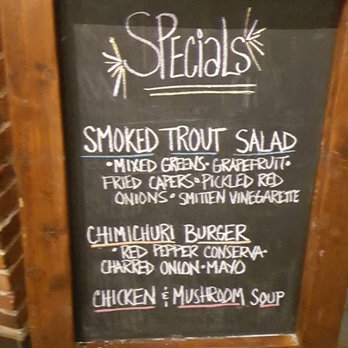 SPECIALS
SMOKED TROUT SALAD
•MIXED GREENS•GRAPEFRUIT•
FRIED CAPERS•PICKLED RED
ONIONS•SMITTEN VINEGARETTE
CHIMICHURI BURGER
•RED PEPPER CONSERVA•
CHARRED ONION•MAYO
CHICKEN & MUSHROOM SOUP